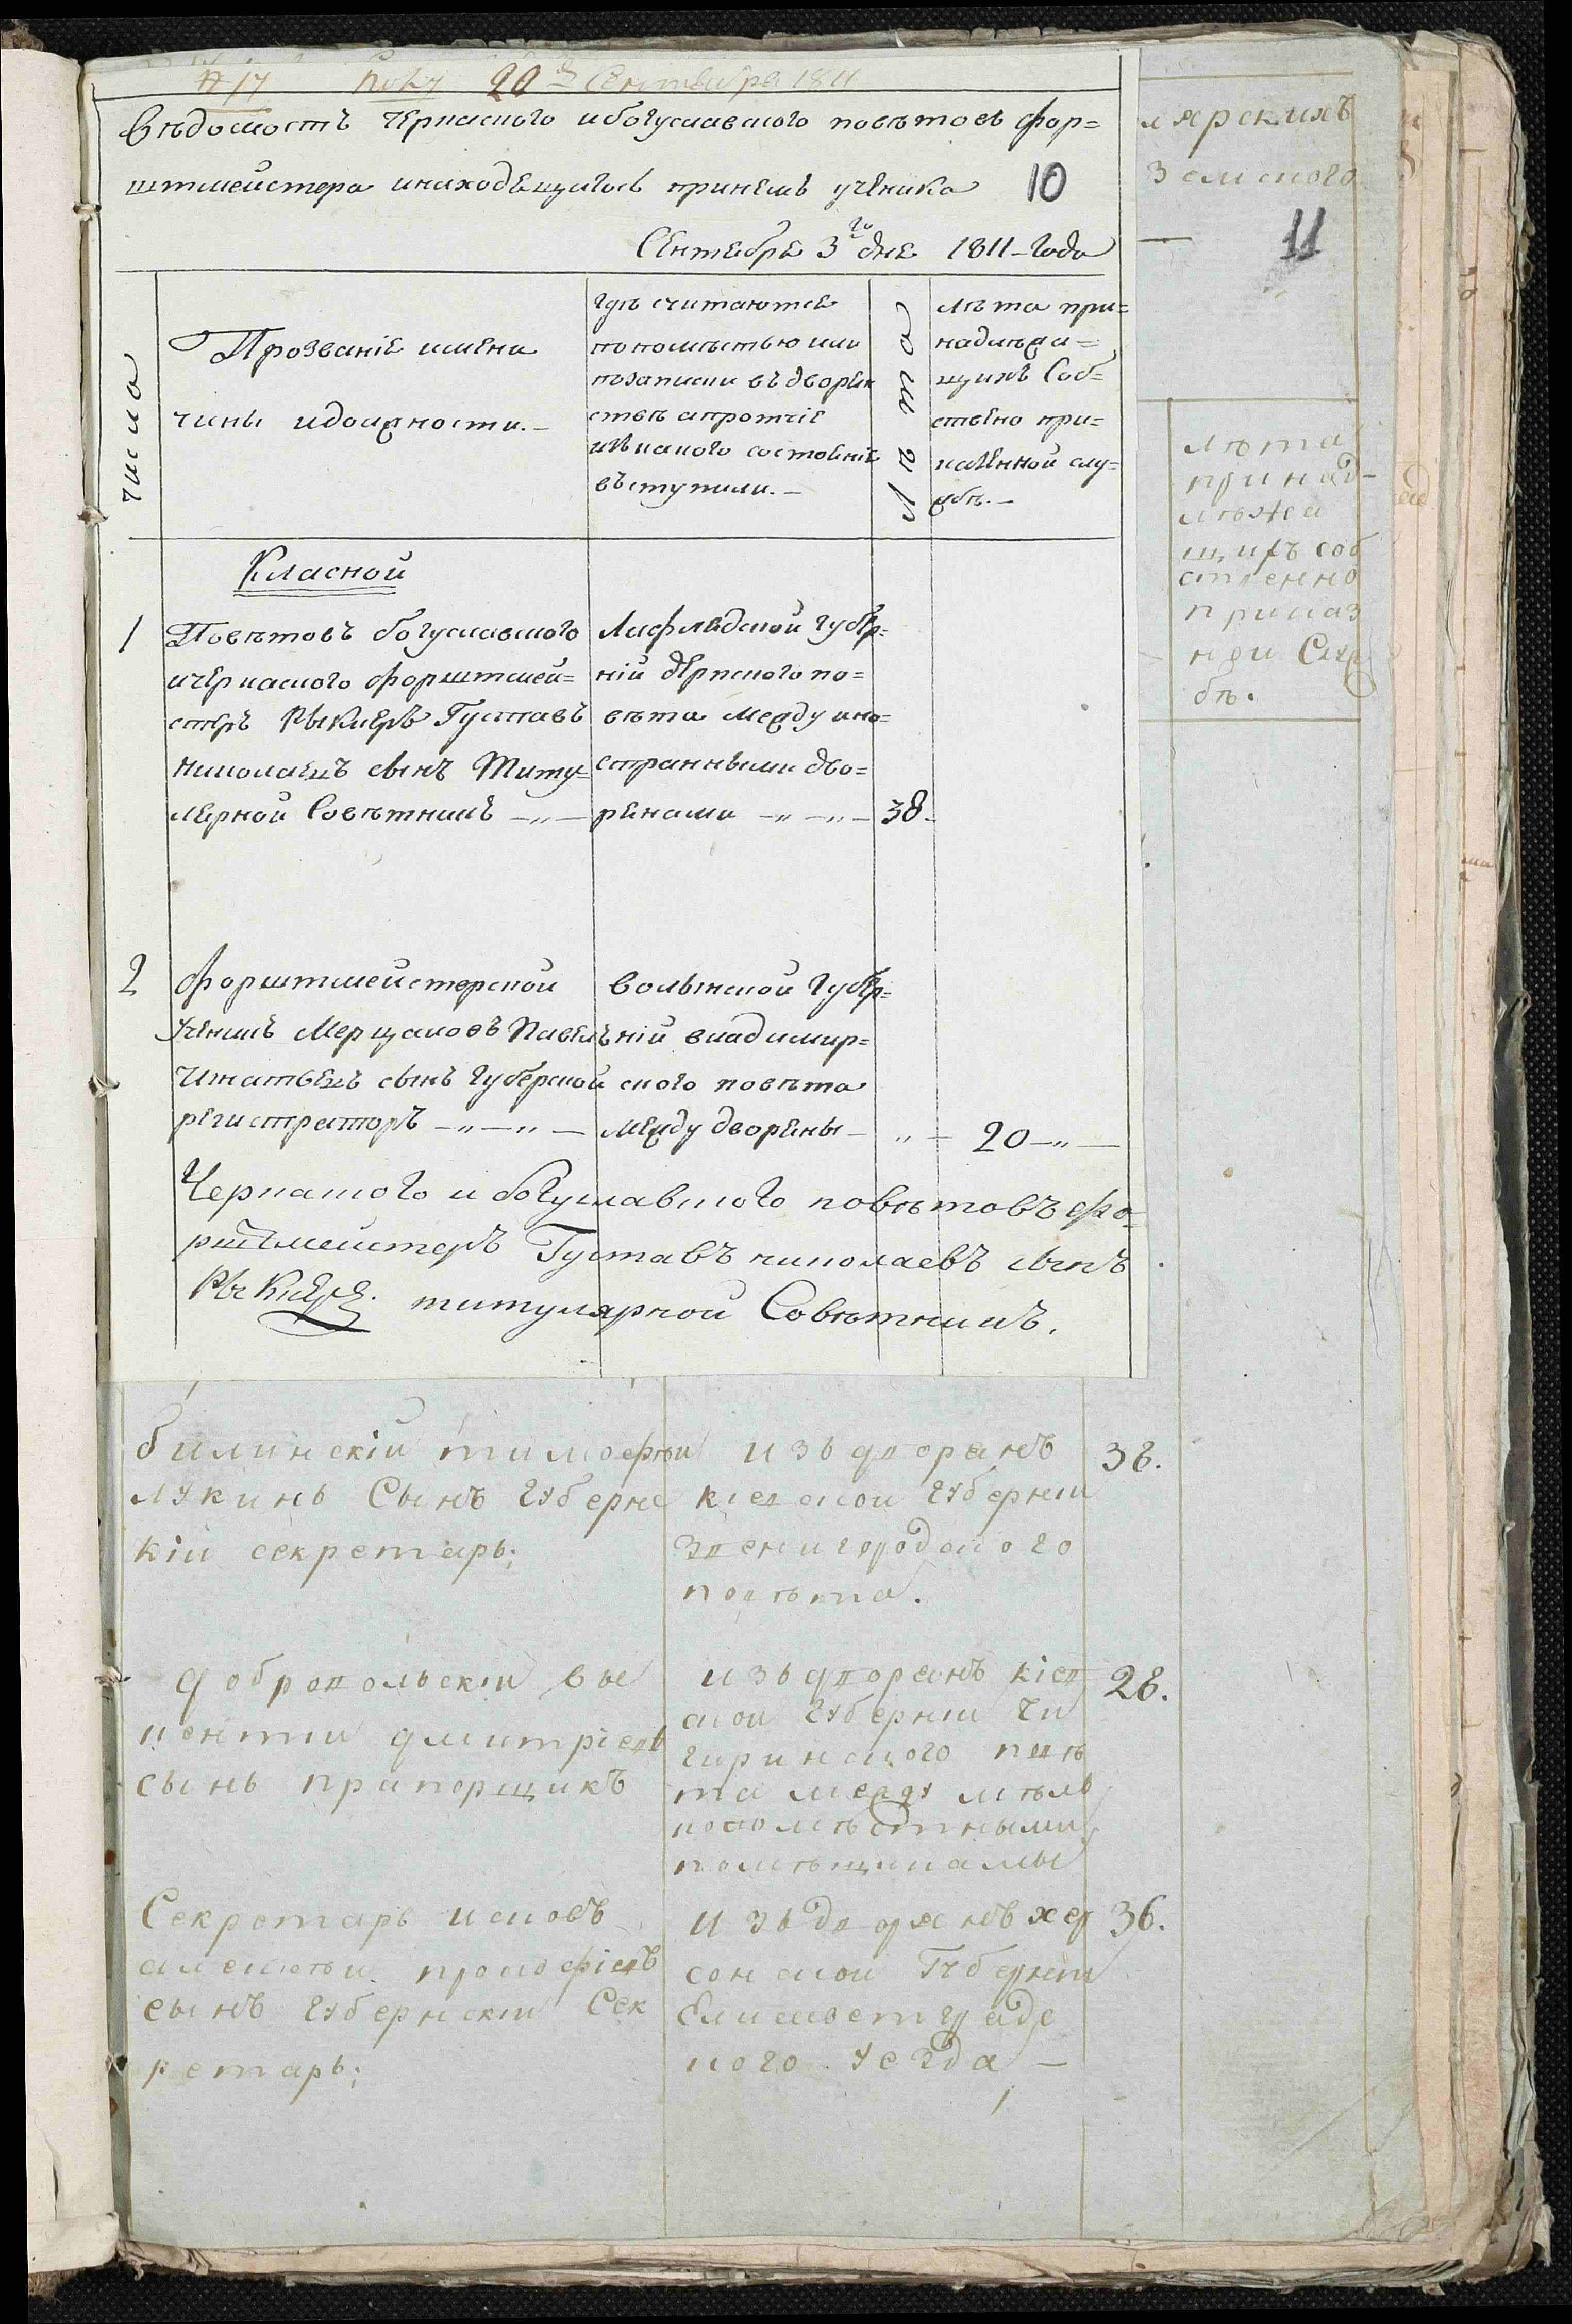 № 17 Полу 20 Сентября 1811
Вѣдомость Черкаского и богуславского повѣтовъ фор=
штмейстера и находящигось при немъ ученика 10
Сентебря 3го дня 1811-Года
числа
Прозваніе имена
чины и должности.-
гдѣ считаются
по помѣстью или
по записки въ дворян
ствѣ а протчіе
исъ какого состоянія
въступили.-
лѣта
лѣта при=
надлежа=
щихъ Соб=
ствено при=
казенной слу=
жбѣ.-
Класной
1 Повѣтовъ богуславского
и черкаского форштмей=
стеръ Рыкперъ Густавъ
Николаевъ сынъ Титу=
лярной Совѣтникъ -„-
Лифлядской губер=
ній дерпского по=
вѣта между ино=
странными дво=
ренами -„-„- 38.
2 форштмейстерской
ученикъ Мерцаловъ Павелъ
Игнатьевъ сынъ губерской
регистраторъ -„-„-
волынской губер=
ній владимир=
ского повѣта
между дворены - „ - 20-„-
Черкаского и богуславского повѣтовъ фо=
рштъмейстеръ Густавъ николаевъ сынъ
титулярной Совѣтникъ.
лярскихъ
Земского
11
лѣта
принад-
лѣжа
щихъ соб
ственно
приказ
ной Служ
бѣ.
билинскіи тимофѣи
лукинъ Сынъ губернс
кіи секретарь;
изъ дворянъ
кіевской губерніи
звенигородского
повѣта.
38.
добровольскіи ви
кентіи дмитріевъ
сынъ прапорщикъ
изъ дворянъ кіев
ской губерніи чи
гиринского повѣ
та между мѣлъ
копомѣстными
помѣщиками
28.
Секретарь исповъ
алексѣи прокофіевъ
сынъ губернскіи Сек
ретарь;
изъ дворянъ хер
сонской Губерніи
Елисаветградс
кого уезда —
36.